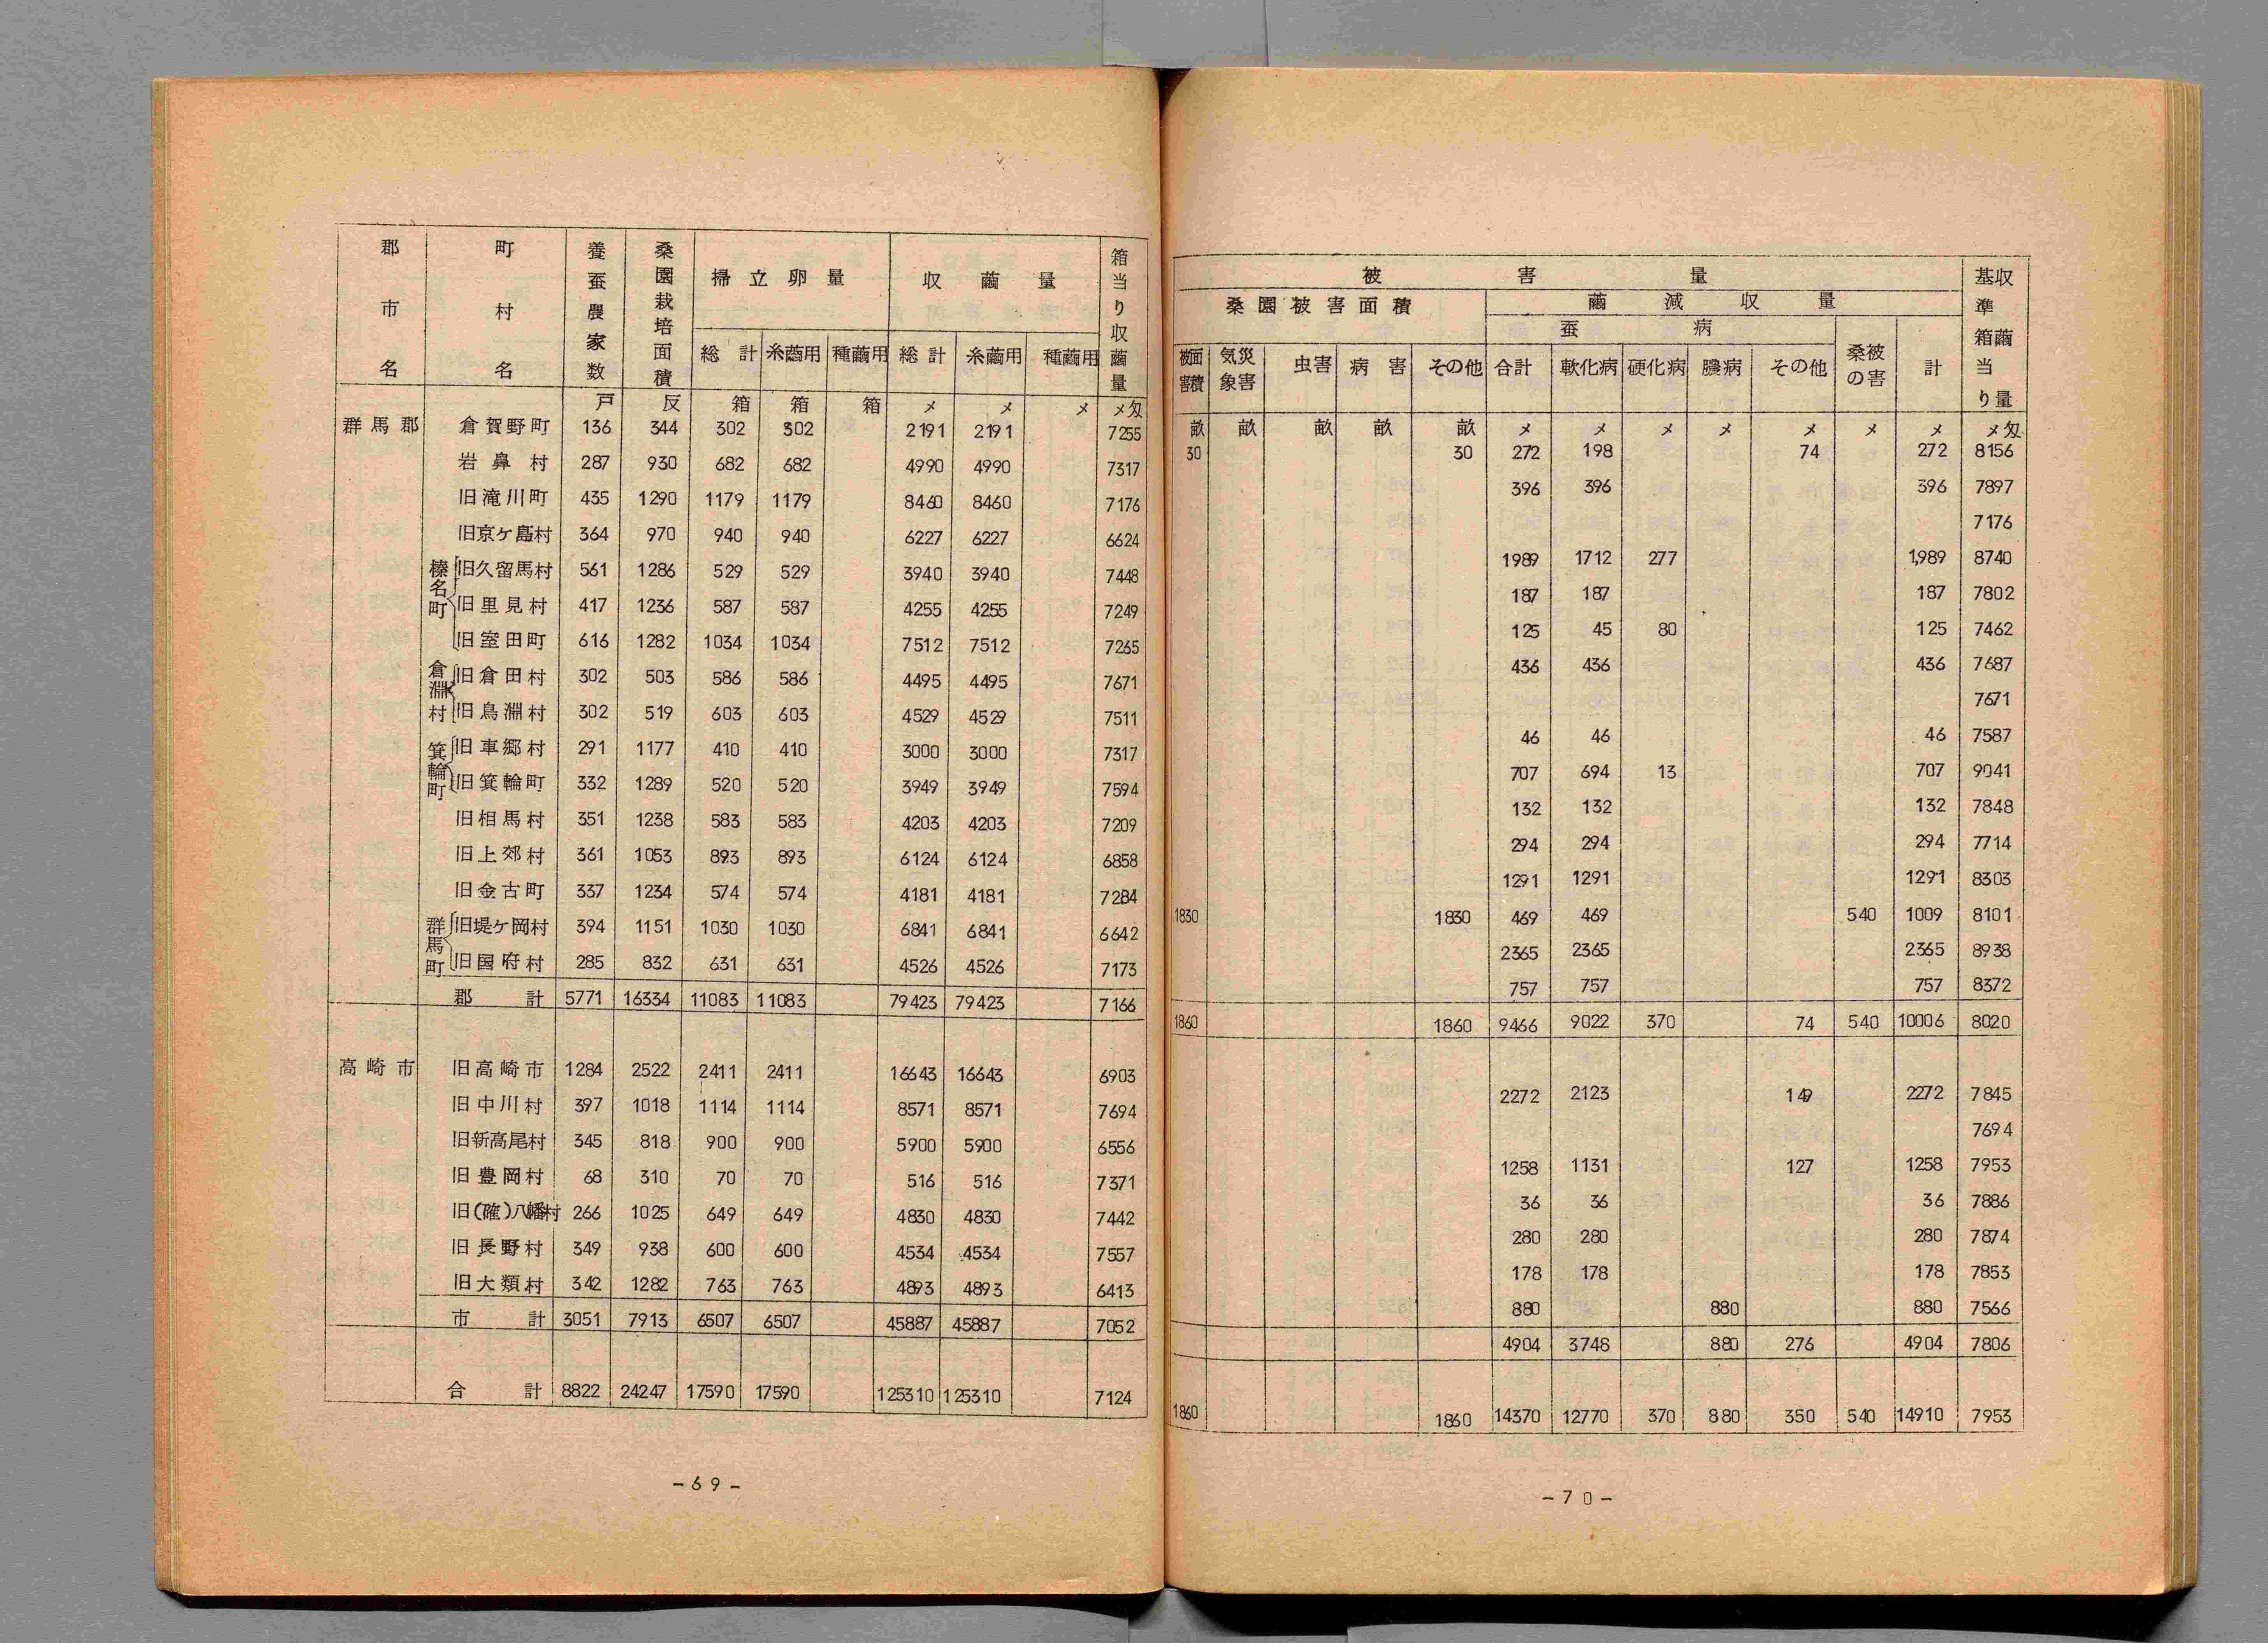 郡市名 町村名 養蚕農家数 桑園栽培面積 掃立卵量 収繭量 箱当り収繭量
総計 糸繭用 種繭用 総計 糸繭用 種繭用
戸 反 箱 箱 箱 〆 〆 〆 〆匁
群馬郡 倉賀野町 136 344 302 302 2191 2191 7255
岩鼻村 287 930 682 682 4990 4990 7317
旧滝川町 435 1290 1179 1179 8460 8460 7176
旧京ケ島村 364 970 940 940 6227 6227 6624
榛名町 旧久留馬村 561 1286 529 529 3940 3940 7448
旧里見村 417 1236 587 587 4255 4255 7249
旧室田町 616 1282 1034 1034 7512 7512 7265
倉淵村 旧倉田村 302 503 586 586 4495 4495 7671
旧烏淵村 302 519 603 603 4529 4529 7511
箕輪町 旧車郷村 291 1177 410 410 3000 3000 7317
旧箕輪町 332 1289 520 520 3949 3949 7594
旧相馬村 351 1238 583 583 4203 4203 7209
旧上郊村 361 1053 893 893 6124 6124 6858
旧金古町 337 1234 574 574 4181 4181 7284
群馬町 旧堤ケ岡村 394 1151 1030 1030 6841 6841 6642
旧国府村 285 832 631 631 4526 4526 7173
郡計 5771 16334 11083 11083 79423 79423 7166
高崎市 旧高崎市 1284 2522 2411 2411 16643 16643 6903
旧中川村 397 1018 1114 1114 8571 8571 7694
旧新高尾村 345 818 900 900 5900 5900 6556
旧豊岡村 68 310 70 70 516 516 7371
旧(碓)八幡村 266 1025 649 649 4830 4830 7442
旧長野村 349 938 600 600 4534 4534 7557
旧大類村 342 1282 763 763 4893 4893 6413
市計 3051 7913 6507 6507 45887 45887 7052
合計 8822 24247 17590 17590 125310 125310 7124
-69-
被害量 基準箱当り収繭量
桑園被害面積 繭減収量
蚕病 桑の被害 計
被害面積 気象災害 虫害 病害 その他 合計 軟化病 硬化病 膿病 その他
畝 畝 畝 畝 畝 〆 〆 〆 〆 〆 〆 〆 〆匁
30 30 272 198 74 272 8156
396 396 396 7897
7176
1989 1712 277 1,989 8740
187 187 187 7802
125 45 80 125 7462
436 436 436 7687
7671
46 46 46 7587
707 694 13 707 9041
132 132 132 7848
294 294 294 7714
1291 1291 1291 8303
1830 1830 469 469 540 1009 8101
2365 2365 2365 8938
757 757 757 8372
1860 1860 9466 9022 370 74 540 10006 8020
2272 2123 149 2272 7845
7694
1258 1131 127 1258 7953
36 36 36 7886
280 280 280 7874
178 178 178 7853
880 880 880 7566
4904 3748 880 276 4904 7806
1860 1860 14370 12770 370 880 350 540 14910 7953
-70-